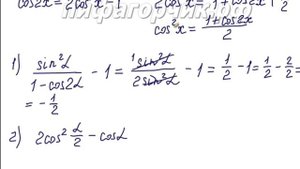 cos2x=2cos²x-1
2cos²x=1+cos2x
cos²x=(1+cos2x)/2
1) sin²α/(1-cos2α) - 1 = sin²α/(2sin²α) - 1 = 1/2 - 1 = 1/2 - 2/2 =
= -1/2
2) 2cos² α/2 - cosα